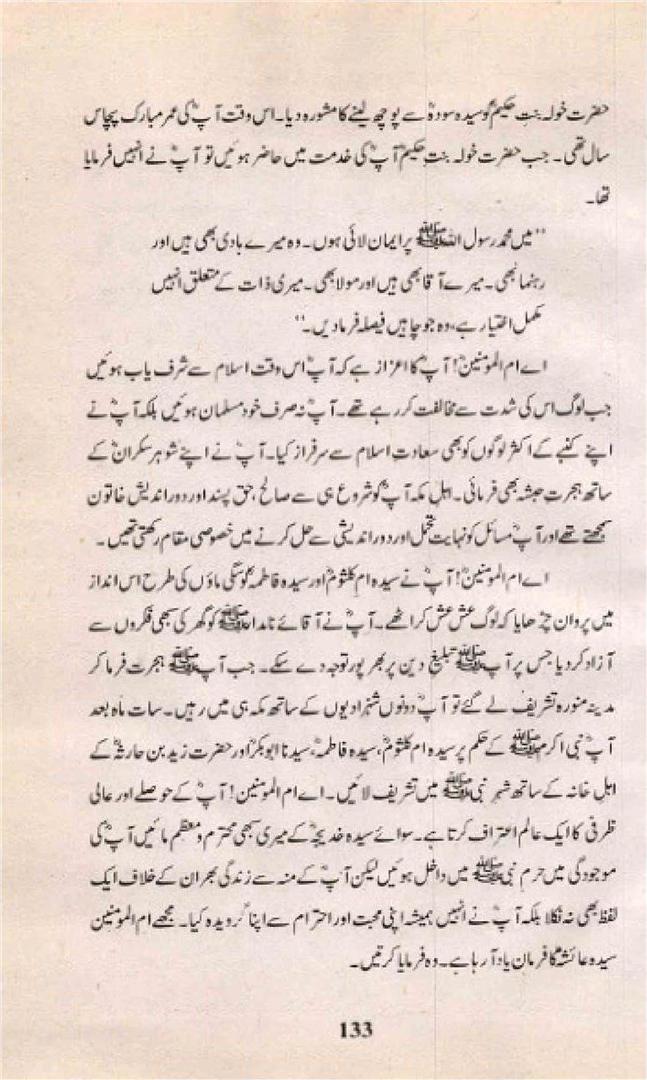 حضرت خولہ بنتِ حکیمؓ کو سیدہ سودہؓ سے پوچھ لینے کا مشورہ دیا۔ اس وقت آپؓ کی عمر مبارک پچاس
سال تھی۔ جب حضرت خولہ بنتِ حکیمؓ آپؓ کی خدمت میں حاضر ہوئیں تو آپؓ نے انہیں فرمایا
تھا۔
"میں محمد رسول اللہ ﷺ پر ایمان لائی ہوں۔ وہ میرے ہادی بھی ہیں اور
رہنما بھی۔ میرے آقا بھی ہیں اور مولا بھی۔ میری ذات کے متعلق انہیں
مکمل اختیار ہے، وہ جو چاہیں فیصلہ فرمادیں۔"
اے ام المومنینؓ! آپؓ کا اعزاز ہے کہ آپؓ اس وقت اسلام سے شرف یاب ہوئیں
جب لوگ اس کی شدت سے مخالفت کر رہے تھے۔ آپؓ نہ صرف خود مسلمان ہوئیں بلکہ آپؓ نے
اپنے کنبے کے اکثر لوگوں کو بھی سعادتِ اسلام سے سرفراز کیا۔ آپؓ نے اپنے شوہر سکرانؓ کے
ساتھ ہجرتِ حبشہ بھی فرمائی۔ اہلِ مکہ آپؓ کو شروع ہی سے صالح، حق پسند اور دور اندیش خاتون
سمجھتے تھے اور آپؓ مسائل کو نہایت تحمل اور دور اندیشی سے حل کرنے میں خصوصی مقام رکھتی تھیں۔
اے ام المومنینؓ! آپؓ نے سیدہ ام کلثومؓ اور سیدہ فاطمہؓ کو سگی ماؤں کی طرح اس انداز
میں پروان چڑھایا کہ لوگ عش عش کر اٹھے۔ آپؓ نے آقائے نامدار ﷺ کو گھر کی سبھی فکروں سے
آزاد کر دیا جس پر آپ ﷺ تبلیغِ دین پر بھرپور توجہ دے سکے۔ جب آپ ﷺ ہجرت فرما کر
مدینہ منورہ تشریف لے گئے تو آپؓ دونوں شہزادیوں کے ساتھ مکہ ہی میں رہیں۔ سات ماہ بعد
آپؓ نبی اکرم ﷺ کے حکم پر سیدہ ام کلثومؓ، سیدہ فاطمہؓ، سیدنا ابوبکرؓ اور حضرت زید بن حارثہؓ کے
اہلِ خانہ کے ساتھ شہرِ نبی ﷺ میں تشریف لائیں۔ اے ام المومنینؓ! آپؓ کے حوصلے اور عالی
ظرفی کا ایک عالم اعتراف کرتا ہے۔ سوائے سیدہ خدیجہؓ کے میری سبھی محترم و معظم مائیں آپؓ کی
موجودگی میں حرمِ نبی ﷺ میں داخل ہوئیں لیکن آپؓ کے منہ سے زندگی بھر ان کے خلاف ایک
لفظ بھی نہ نکلا بلکہ آپؓ نے انہیں ہمیشہ اپنی محبت اور احترام سے اپنا گرویدہ کیا۔ مجھے ام المومنین
سیدہ عائشہؓ کا فرمان یاد آ رہا ہے۔ وہ فرمایا کرتیں۔
133